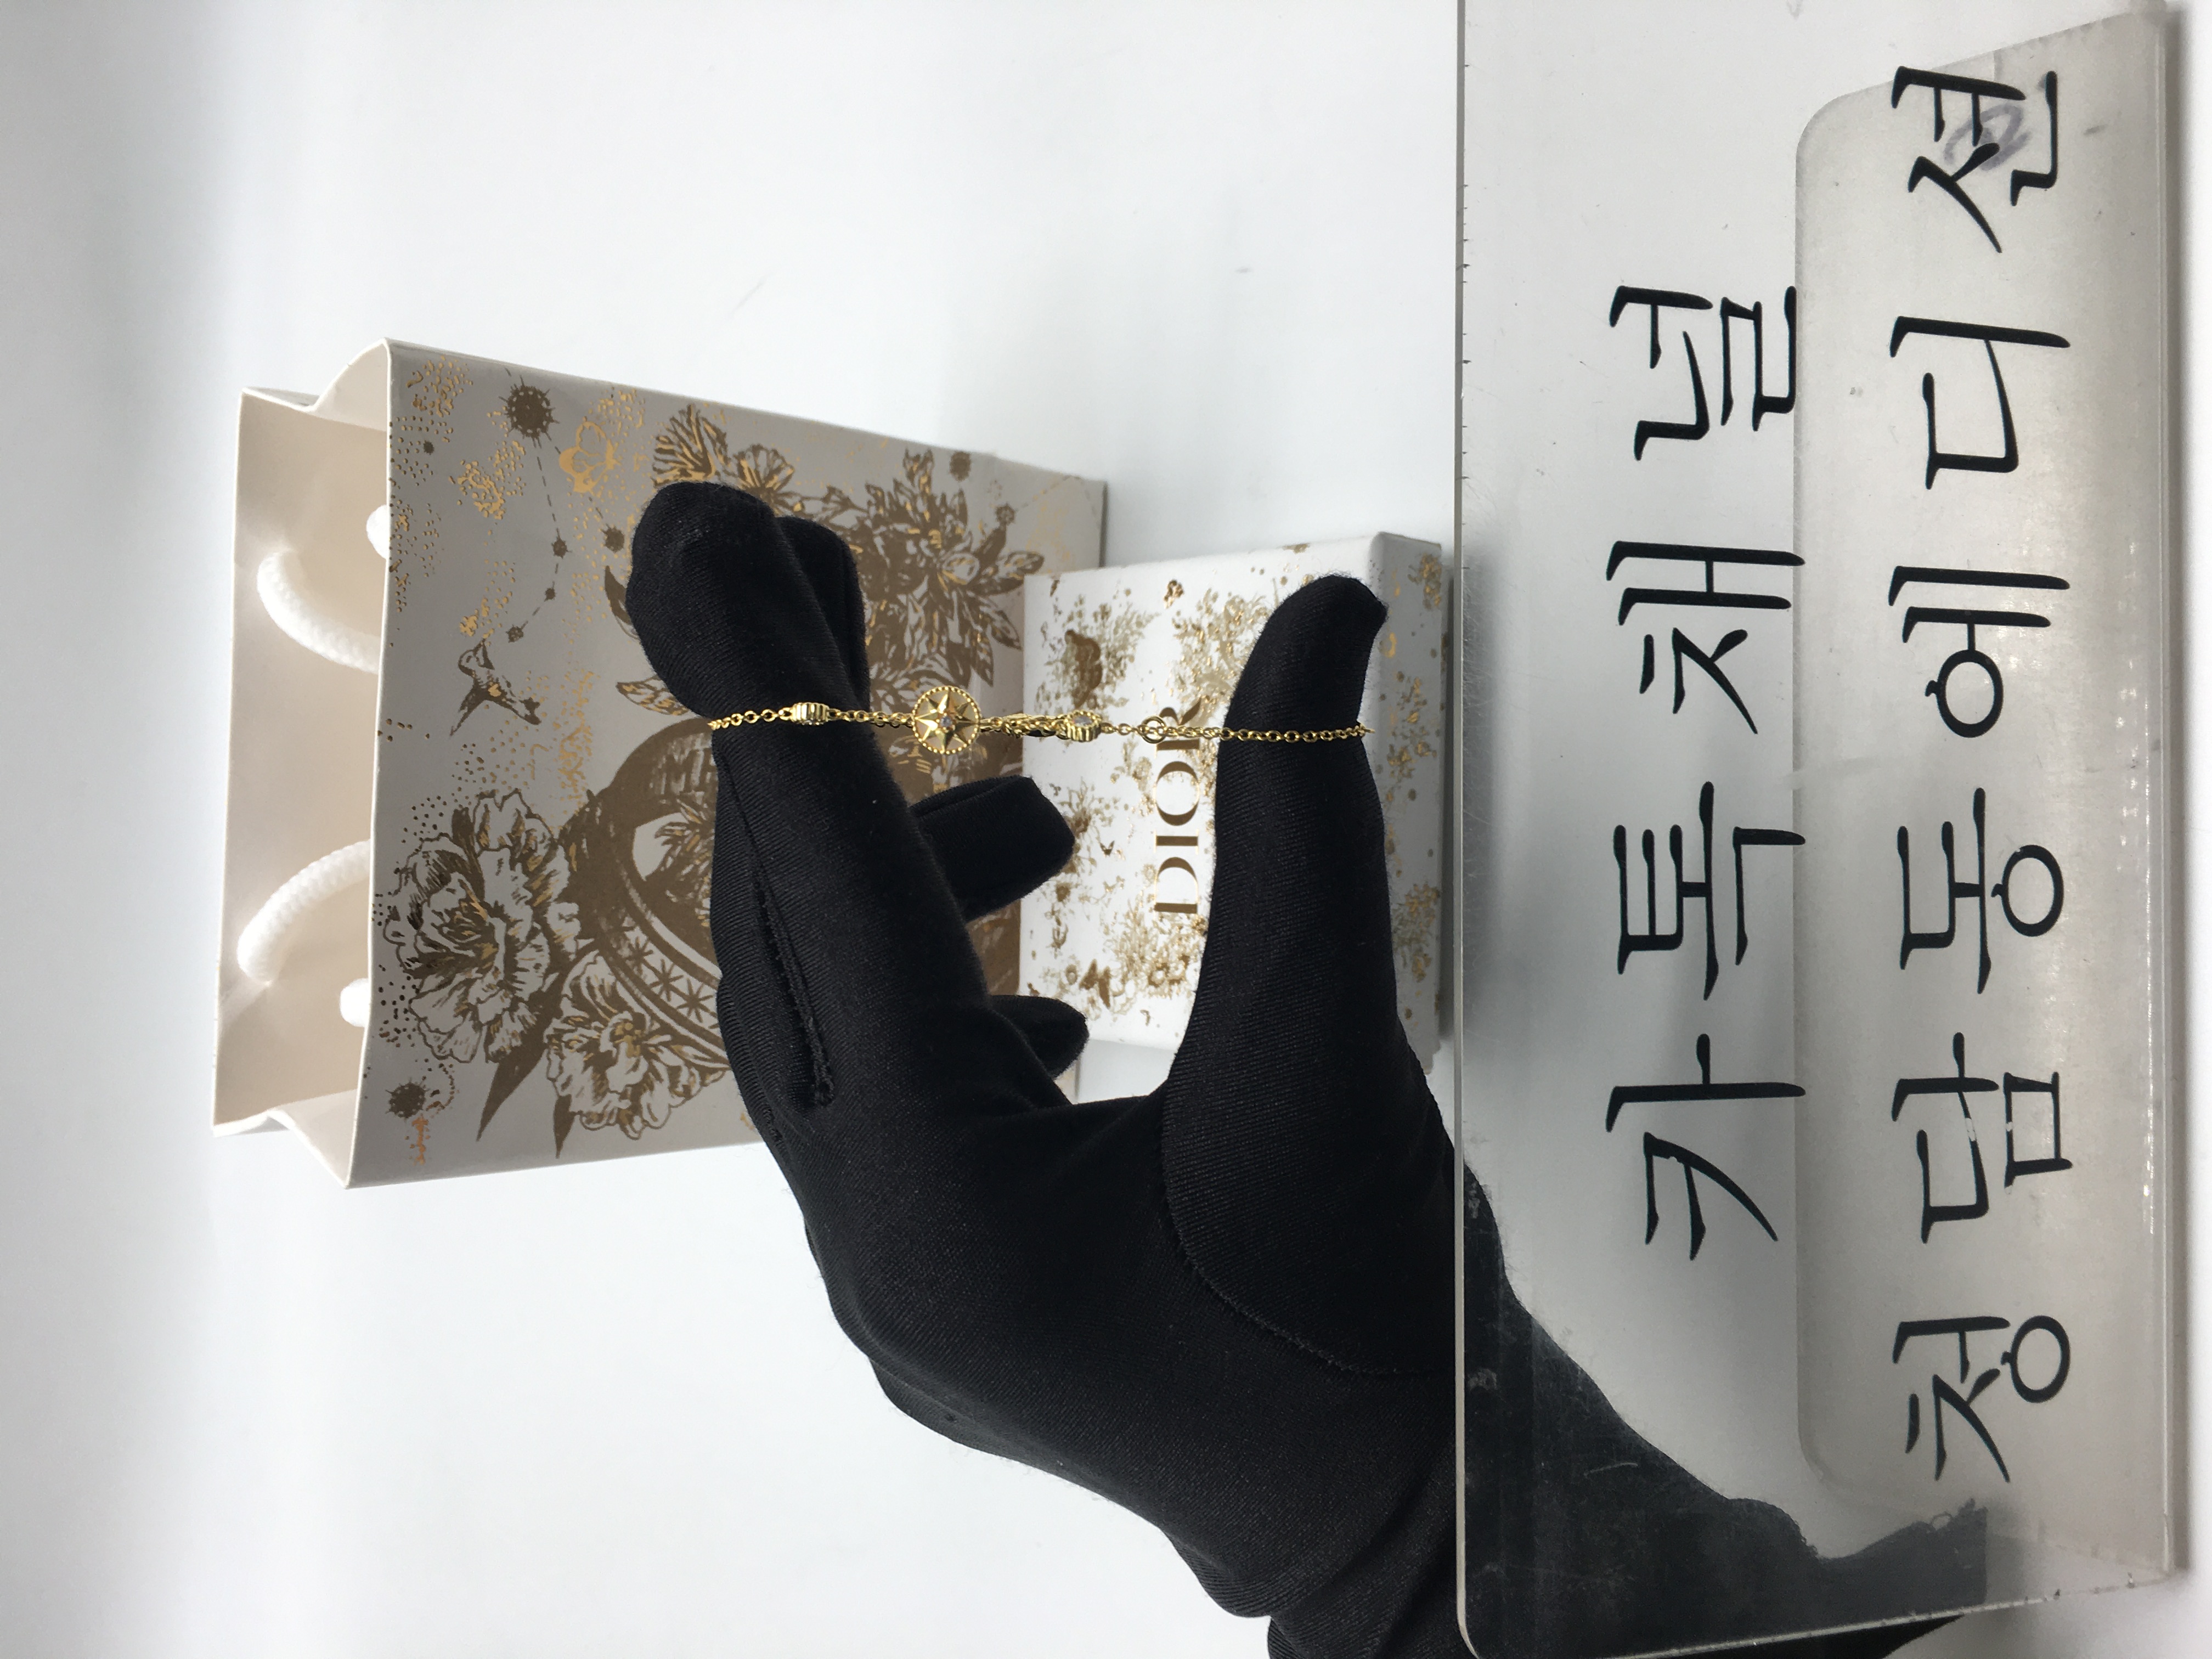 DIOR
카톡채널
청담동에디션